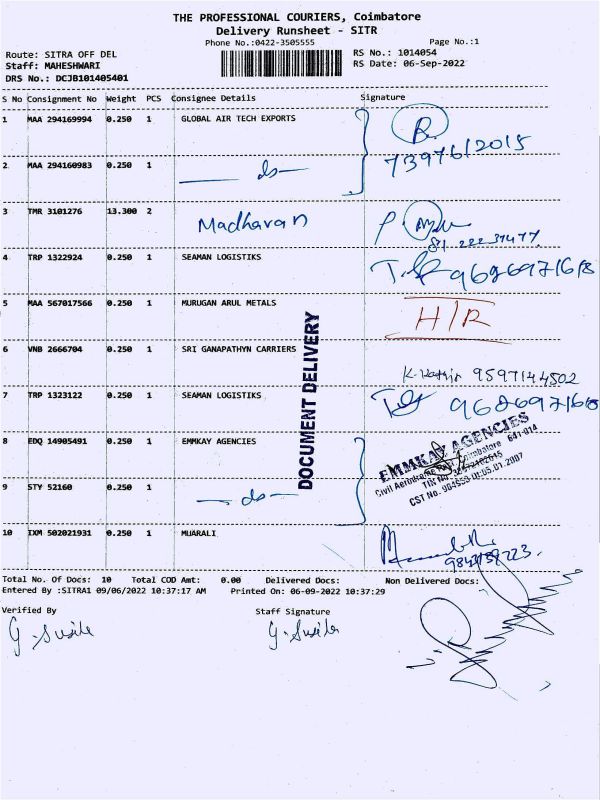 THE PROFESSIONAL COURIERS, Coimbatore
Delivery Runsheet - SITR
Phone No.:0422-3505555 Page No.:1
Route: SITRA OFF DEL RS No.: 1014054
Staff: MAHESHWARI RS Date: 06-Sep-2022
DRS No.: DCJB101405401
S No Consignment No Weight PCS Consignee Details Signature
1 MAA 294169994 0.250 1 GLOBAL AIR TECH EXPORTS
7397612015
2 MAA 294160983 0.250 1 ds
3 TMR 3101276 13.300 2 Madhavan
4 TRP 1322924 0.250 1 SEAMAN LOGISTIKS 9626971618
5 MAA 567017566 0.250 1 MURUGAN ARUL METALS H/R
6 VNB 2666704 0.250 1 SRI GANAPATHYN CARRIERS
9597144502
7 TRP 1323122 0.250 1 SEAMAN LOGISTIKS 9626971618
DOCUMENT DELIVERY
8 EDQ 14905491 0.250 1 EMMKAY AGENCIES
EMMKAY AGENCIES
Coimbatore 641 014
CST No.
9 STY 52160 0.250 1 ds
10 IXM 502021931 0.250 1 MUARALI
Total No. Of Docs: 10 Total COD Amt: 0.00 Delivered Docs: Non Delivered Docs:
Entered By :SITRA1 09/06/2022 10:37:17 AM Printed On: 06-09-2022 10:37:29
Verified By Staff Signature
G. Susila G. Susila